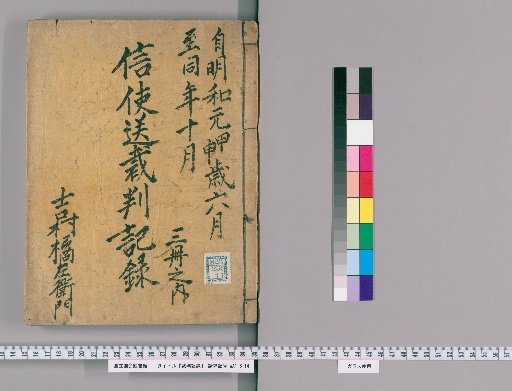 自明和元甲申歳六月
至同年十月
信使送裁判記録
三冊之内
士村橘左衛門
ガラス使用